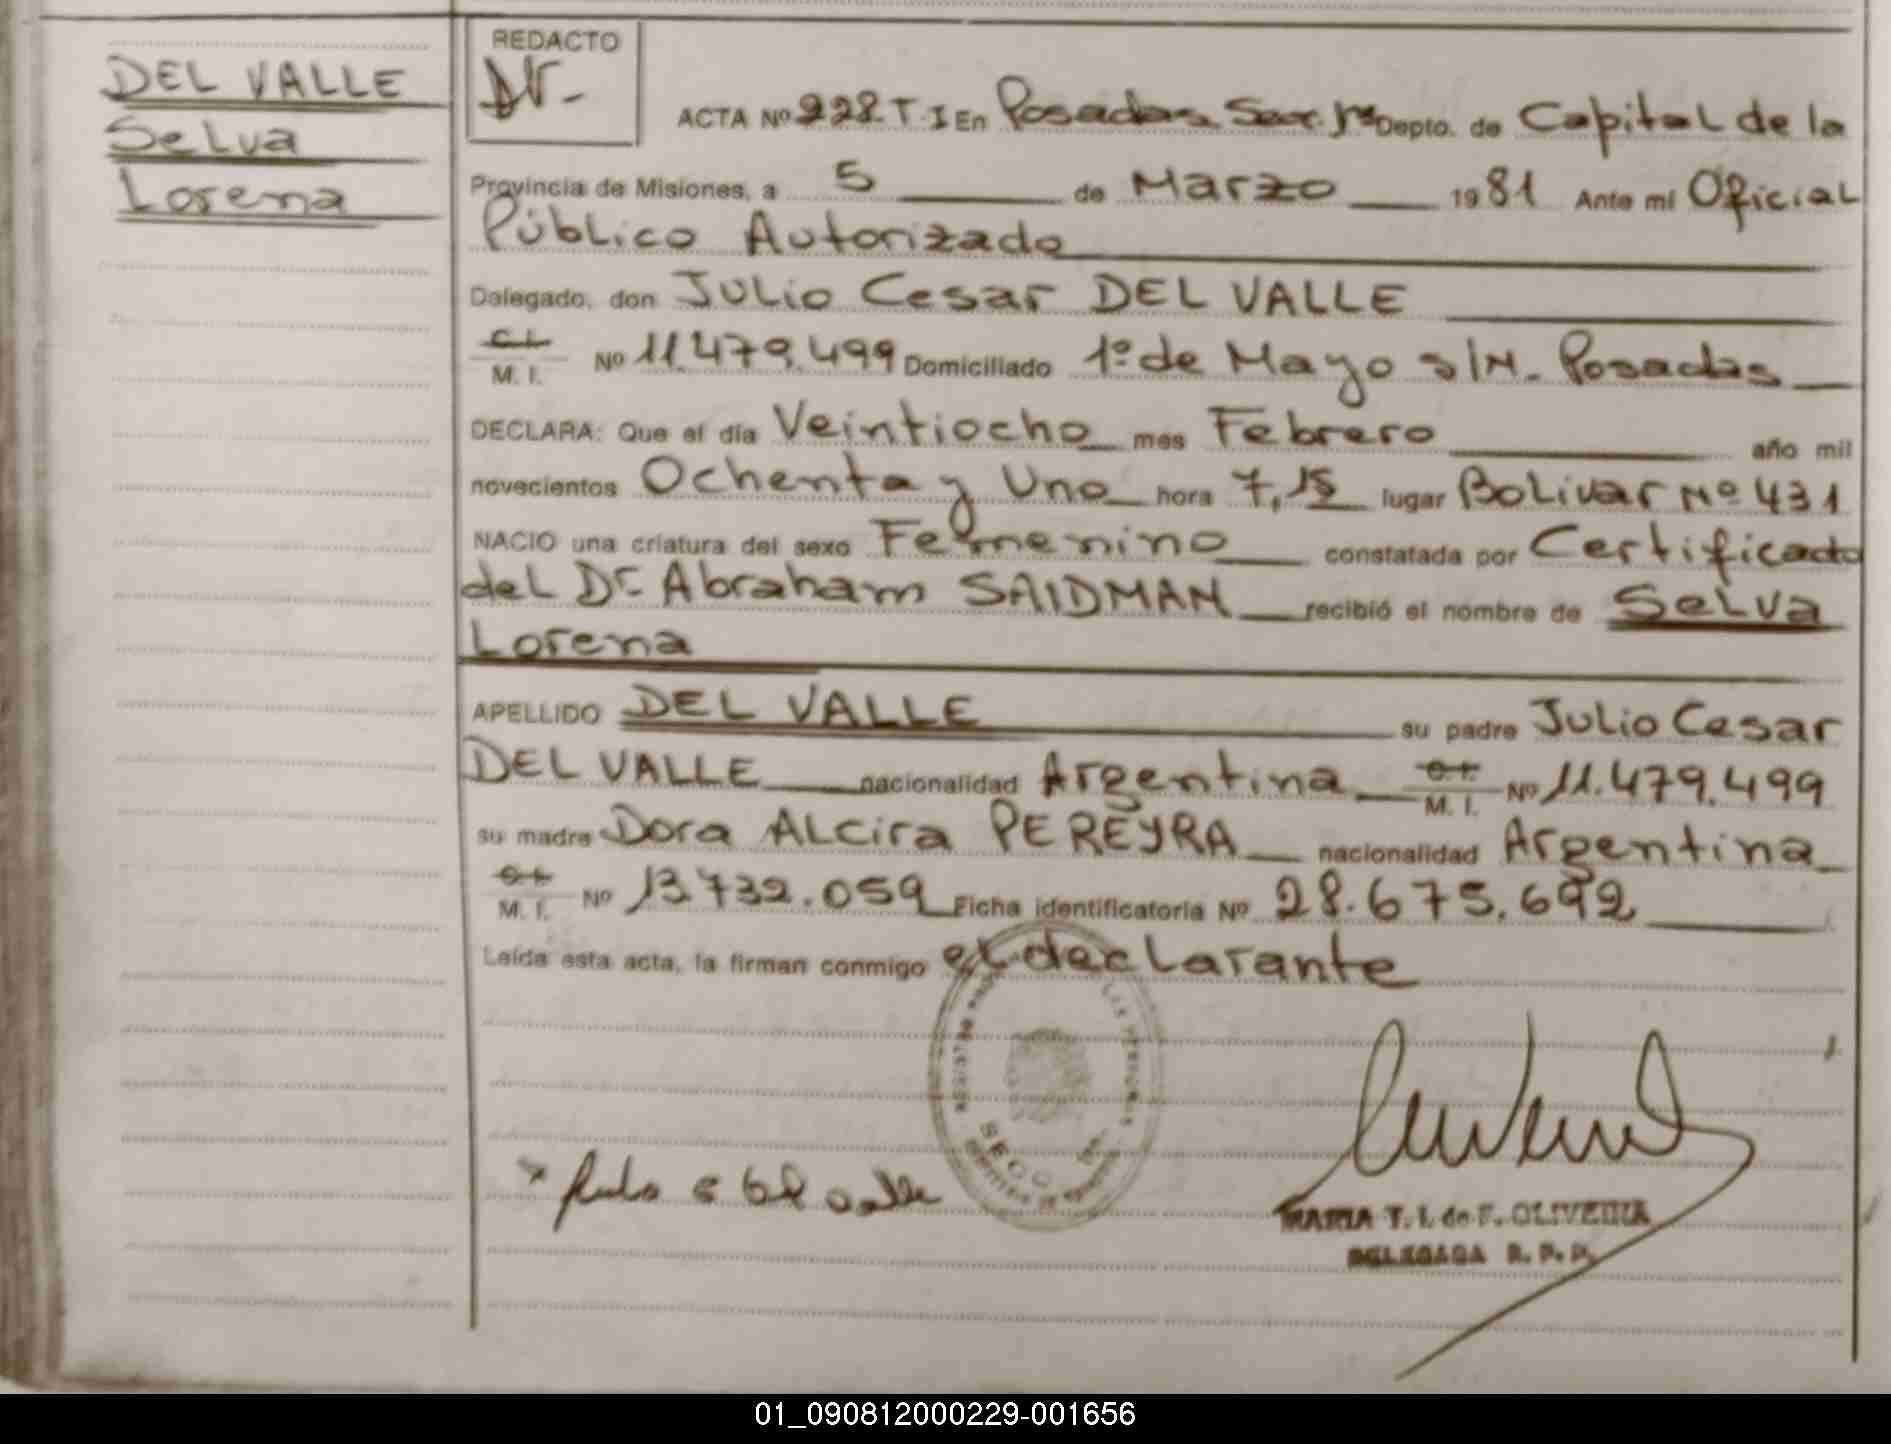 DEL VALLE
Selva
Lorena
REDACTO
ACTA Nº 228 T. I En Posadas Secc. 1ra Depto. de Capital de la
Provincia de Misiones, a 5 de Marzo 1981 Ante mi Oficial
Público Autorizado
Delegado, don Julio Cesar DEL VALLE
C.I.
M. I. Nº 11.479.499 Domiciliado 1º de Mayo s/N. Posadas
DECLARA: Que el día Veintiocho mes Febrero año mil
novecientos Ochenta y Uno hora 7,15 lugar Bolivar Nº 431
NACIO una criatura del sexo Femenino constatada por Certificado
del Dr. Abraham SAIDMAN recibió el nombre de Selva
Lorena
APELLIDO DEL VALLE su padre Julio Cesar
DEL VALLE nacionalidad Argentina C.I. M. I. Nº 11.479.499
su madre Dora Alcira PEREYRA nacionalidad Argentina
C.I.
M. I. Nº 13.732.059 Ficha identificatoria Nº 28.675.692
Leída esta acta, la firman conmigo el declarante
MARIA T. I. de F. OLIVEIRA
DELEGADA R. P. P.
01_090812000229-001656